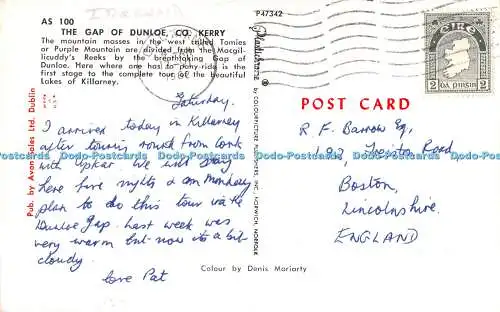 AS 100
THE GAP OF DUNLOE, CO. KERRY
The mountain masses in the west called Tomies
or Purple Mountain are divided from the Macgil-
licuddy's Reeks by the breathtaking Gap of
Dunloe. Here where one has to pony-ride is the
first stage to the complete tour of the beautiful
Lakes of Killarney.
Pub. by Avon Sales Ltd. Dublin
Saturday.
I arrived today in Killarney
after touring round from Cork
with We will stay
here five nights & on Monday
plan to do this tour via the
Dunloe Gap. Last week was
very warm but now its a bit
cloudy.
love Pat
Colour by Denis Moriarty
P47342
Plastichrome ® BY COLOURPICTURE PUBLISHERS, INC., NORWICH, NORFOLK
ÉIRE
2 DA PINGIN 2
POST CARD
R. F. Barrow Esq,
Road
Boston,
Lincolnshire.
ENGLAND
Dodo-Postcards Dodo-Postcards Dodo-Postcards Dodo-Postcards